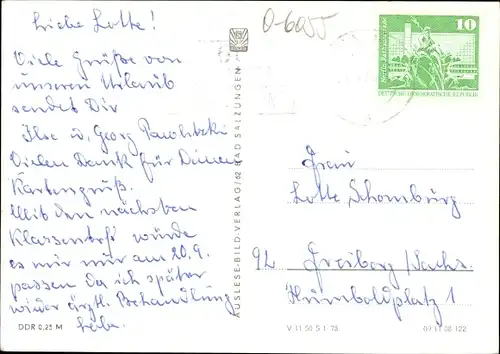 Liebe Lotte!
Viele Grüße von
unseren Urlaub
sendet Dir
Ilse u. Georg
Vielen Dank für Deinen
Kartengruß.
Mit den nächsten
Klassentreff würde
es mir nur am 20.9.
passen da ich später
wieder ärztl. Behandlung
habe.
DDR 0,25 M
AUSLESE-BILD-VERLAG/62 BAD SALZUNGEN
O-6055
10
DEUTSCHE DEMOKRATISCHE REPUBLIK
Frau
Lotte Schomburg
92 Freiberg/Sachs.
Humboldplatz 1
V 11 50 S 1 78
09 11 08 122